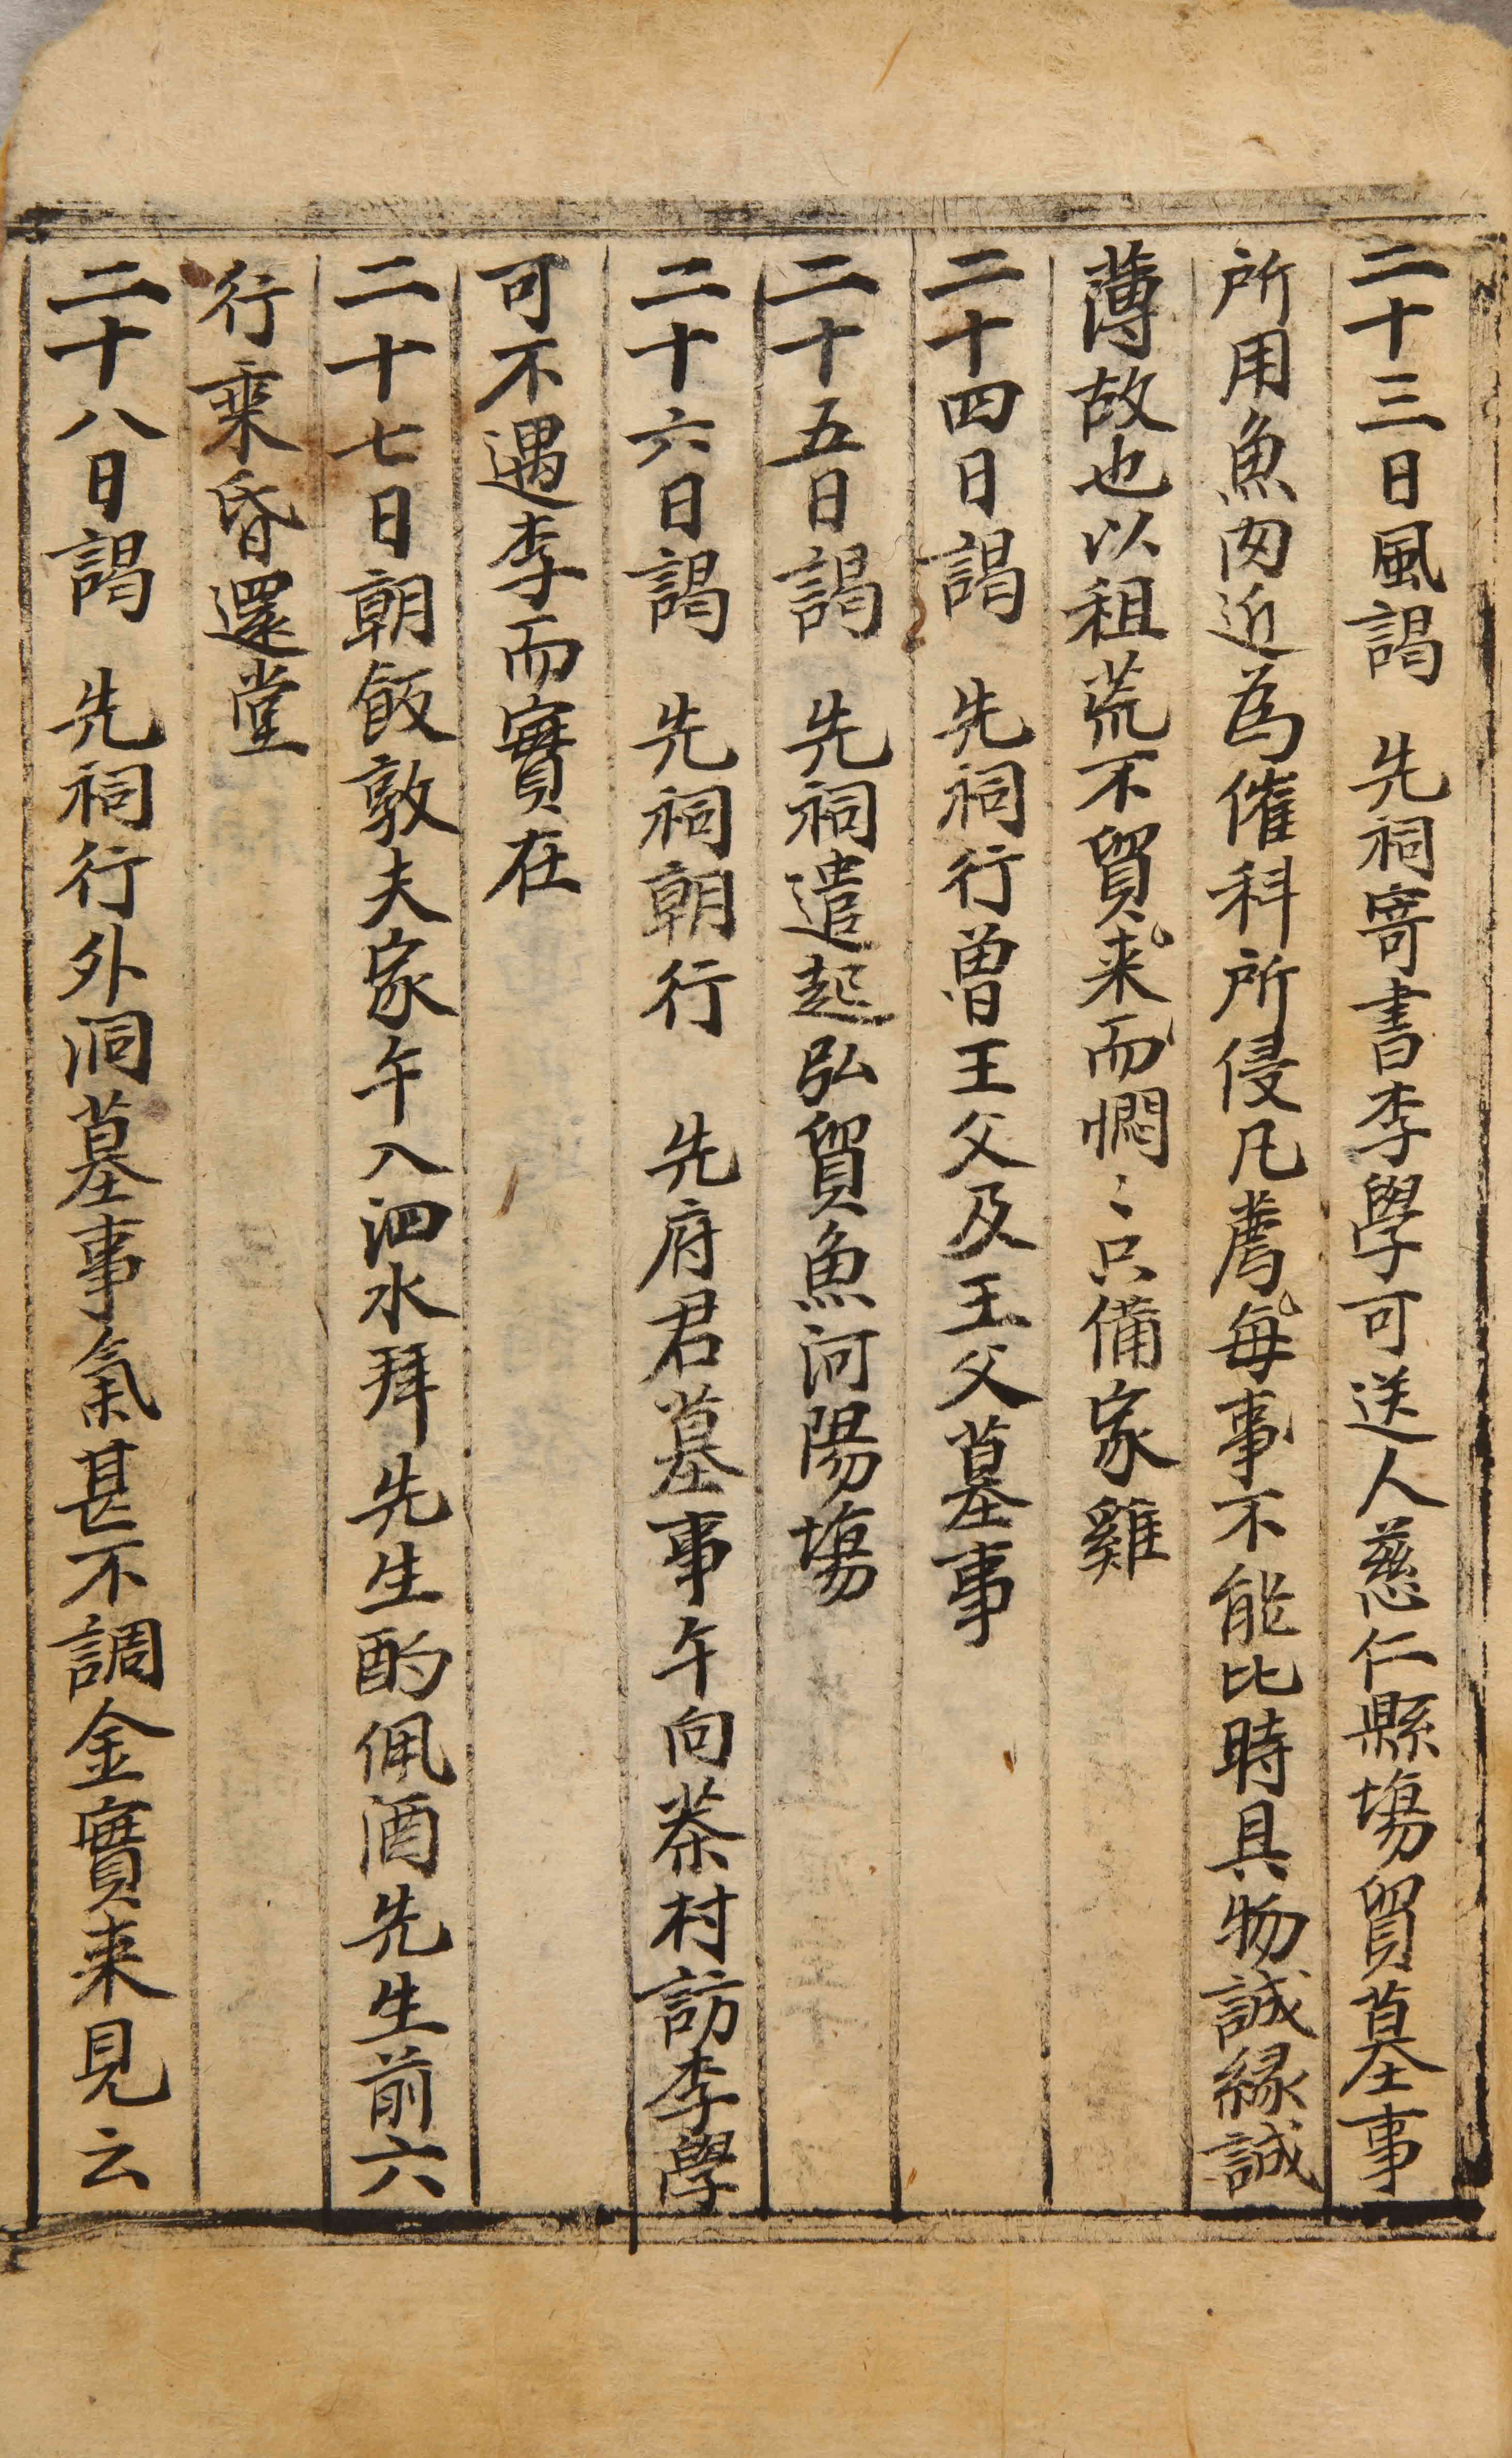 二十三日風謁　先祠寄書李學可送人慈仁縣場貿墓事
所用魚肉近為催科所侵凡薦每事不能比時具物誠緣誠
薄故也以租荒不貿来而憫〻只備家雞
二十四日謁　先祠行曾王父及王父墓事
二十五日謁　先祠遣起弘貿魚河陽場
二十六日謁　先祠朝行　先府君墓事午向茶村訪李學
可不遇李而實在
二十七日朝飯敦夫家午入泗水拜先生酌佩酒先生前六
行乘昏還堂
二十八日謁　先祠行外洞墓事氣甚不調金實来見云